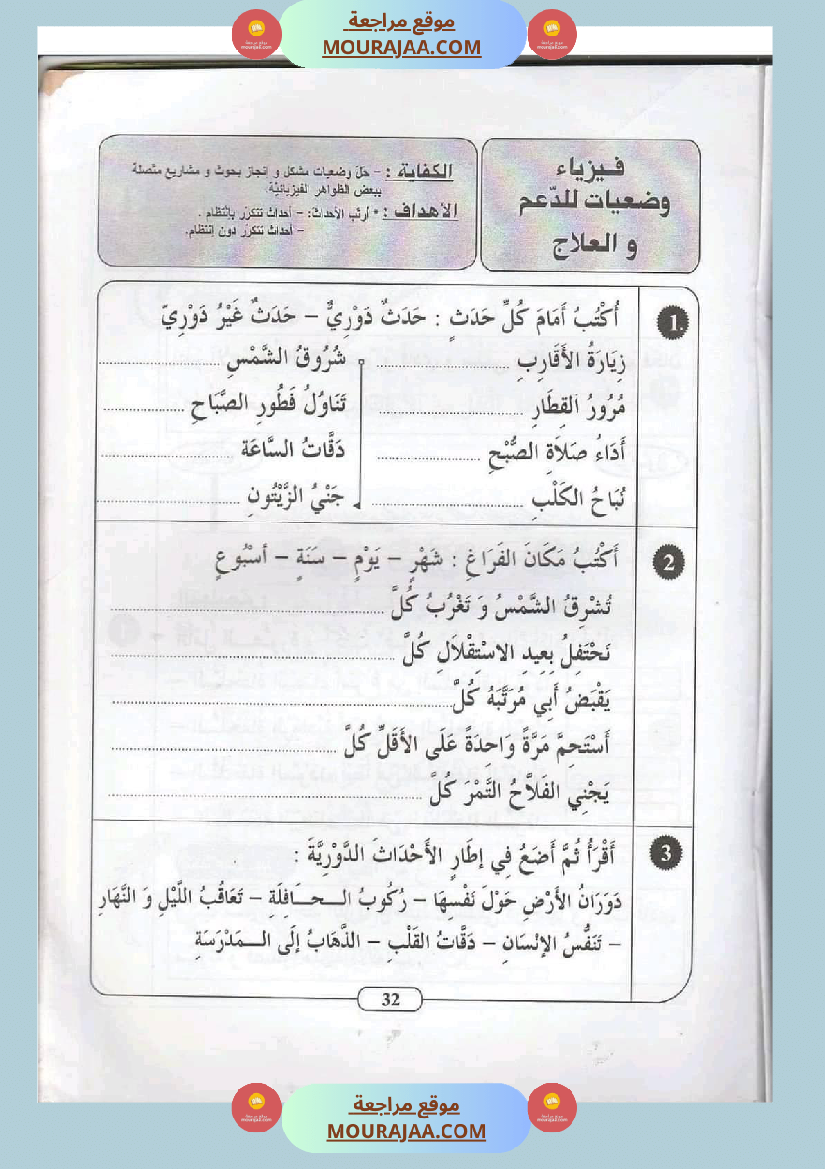 موقع مراجعة
MOURAJAA.COM
فيزياء
وضعيات للدّعم
و العلاج
الكفاية : - حلّ وضعيات مشكل و إنجاز بحوث و مشاريع متّصلة
ببعض الظواهر الفيزيائيّة
الأهداف : • أرتّب الأحداث: - أحداث تتكرّر بإنتظام .
- أحداث تتكرّر دون إنتظام.
1. أُكْتُبُ أَمَامَ كُلِّ حَدَثٍ : حَدَثٌ دَوْرِيٌّ - حَدَثٌ غَيْرُ دَوْرِيّ
زِيَارَةُ الأَقَارِبِ .................... شُرُوقُ الشَّمْسِ ....................
مُرُورُ القِطَارِ .................... تَنَاوُلُ فَطُورِ الصَّبَاحِ ....................
أَدَاءُ صَلَاةِ الصُّبْحِ .................... دَقَّاتُ السَّاعَة ....................
نُبَاحُ الكَلْبِ .................... جَنْيُ الزَّيْتُونِ ....................
2 أَكْتُبُ مَكَانَ الفَرَاغِ : شَهْرٍ - يَوْمٍ - سَنَةٍ - أسْبُوعٍ
تُشْرِقُ الشَّمْسُ وَ تَغْرُبُ كُلَّ ....................
نَحْتَفِلُ بِعِيدِ الاسْتِقْلَالِ كُلَّ ....................
يَقْبَضُ أَبِي مُرَتَّبَهُ كُلَّ ....................
أَسْتَحِمُّ مَرَّةً وَاحِدَةً عَلَى الأَقَلِّ كُلَّ ....................
يَجْنِي الفَلَّاحُ التَّمْرَ كُلَّ ....................
3 أَقْرَأُ ثُمَّ أَضَعُ فِي إطَارِ الأَحْدَاثَ الدَّوْرِيَّةَ :
دَوَرَانُ الأَرْضِ حَوْلَ نَفْسِهَا - رُكُوبُ الـحَـافِلَةِ - تَعَاقُبُ اللَّيْلِ وَ النَّهَارِ
- تَنَفُّسُ الإنْسَانِ - دَقَّاتُ القَلْبِ - الذَّهَابُ إلَى الـمَدْرَسَةِ
32
موقع مراجعة
MOURAJAA.COM